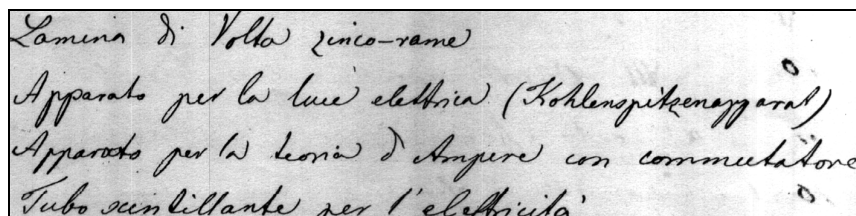 Lamina di Volta zinco-rame
Apparato per la luce elettrica (Kohlenspitzenapparat)
Apparato per la teoria d'Ampere con commutatore
Tubo scintillante per l'elettricità